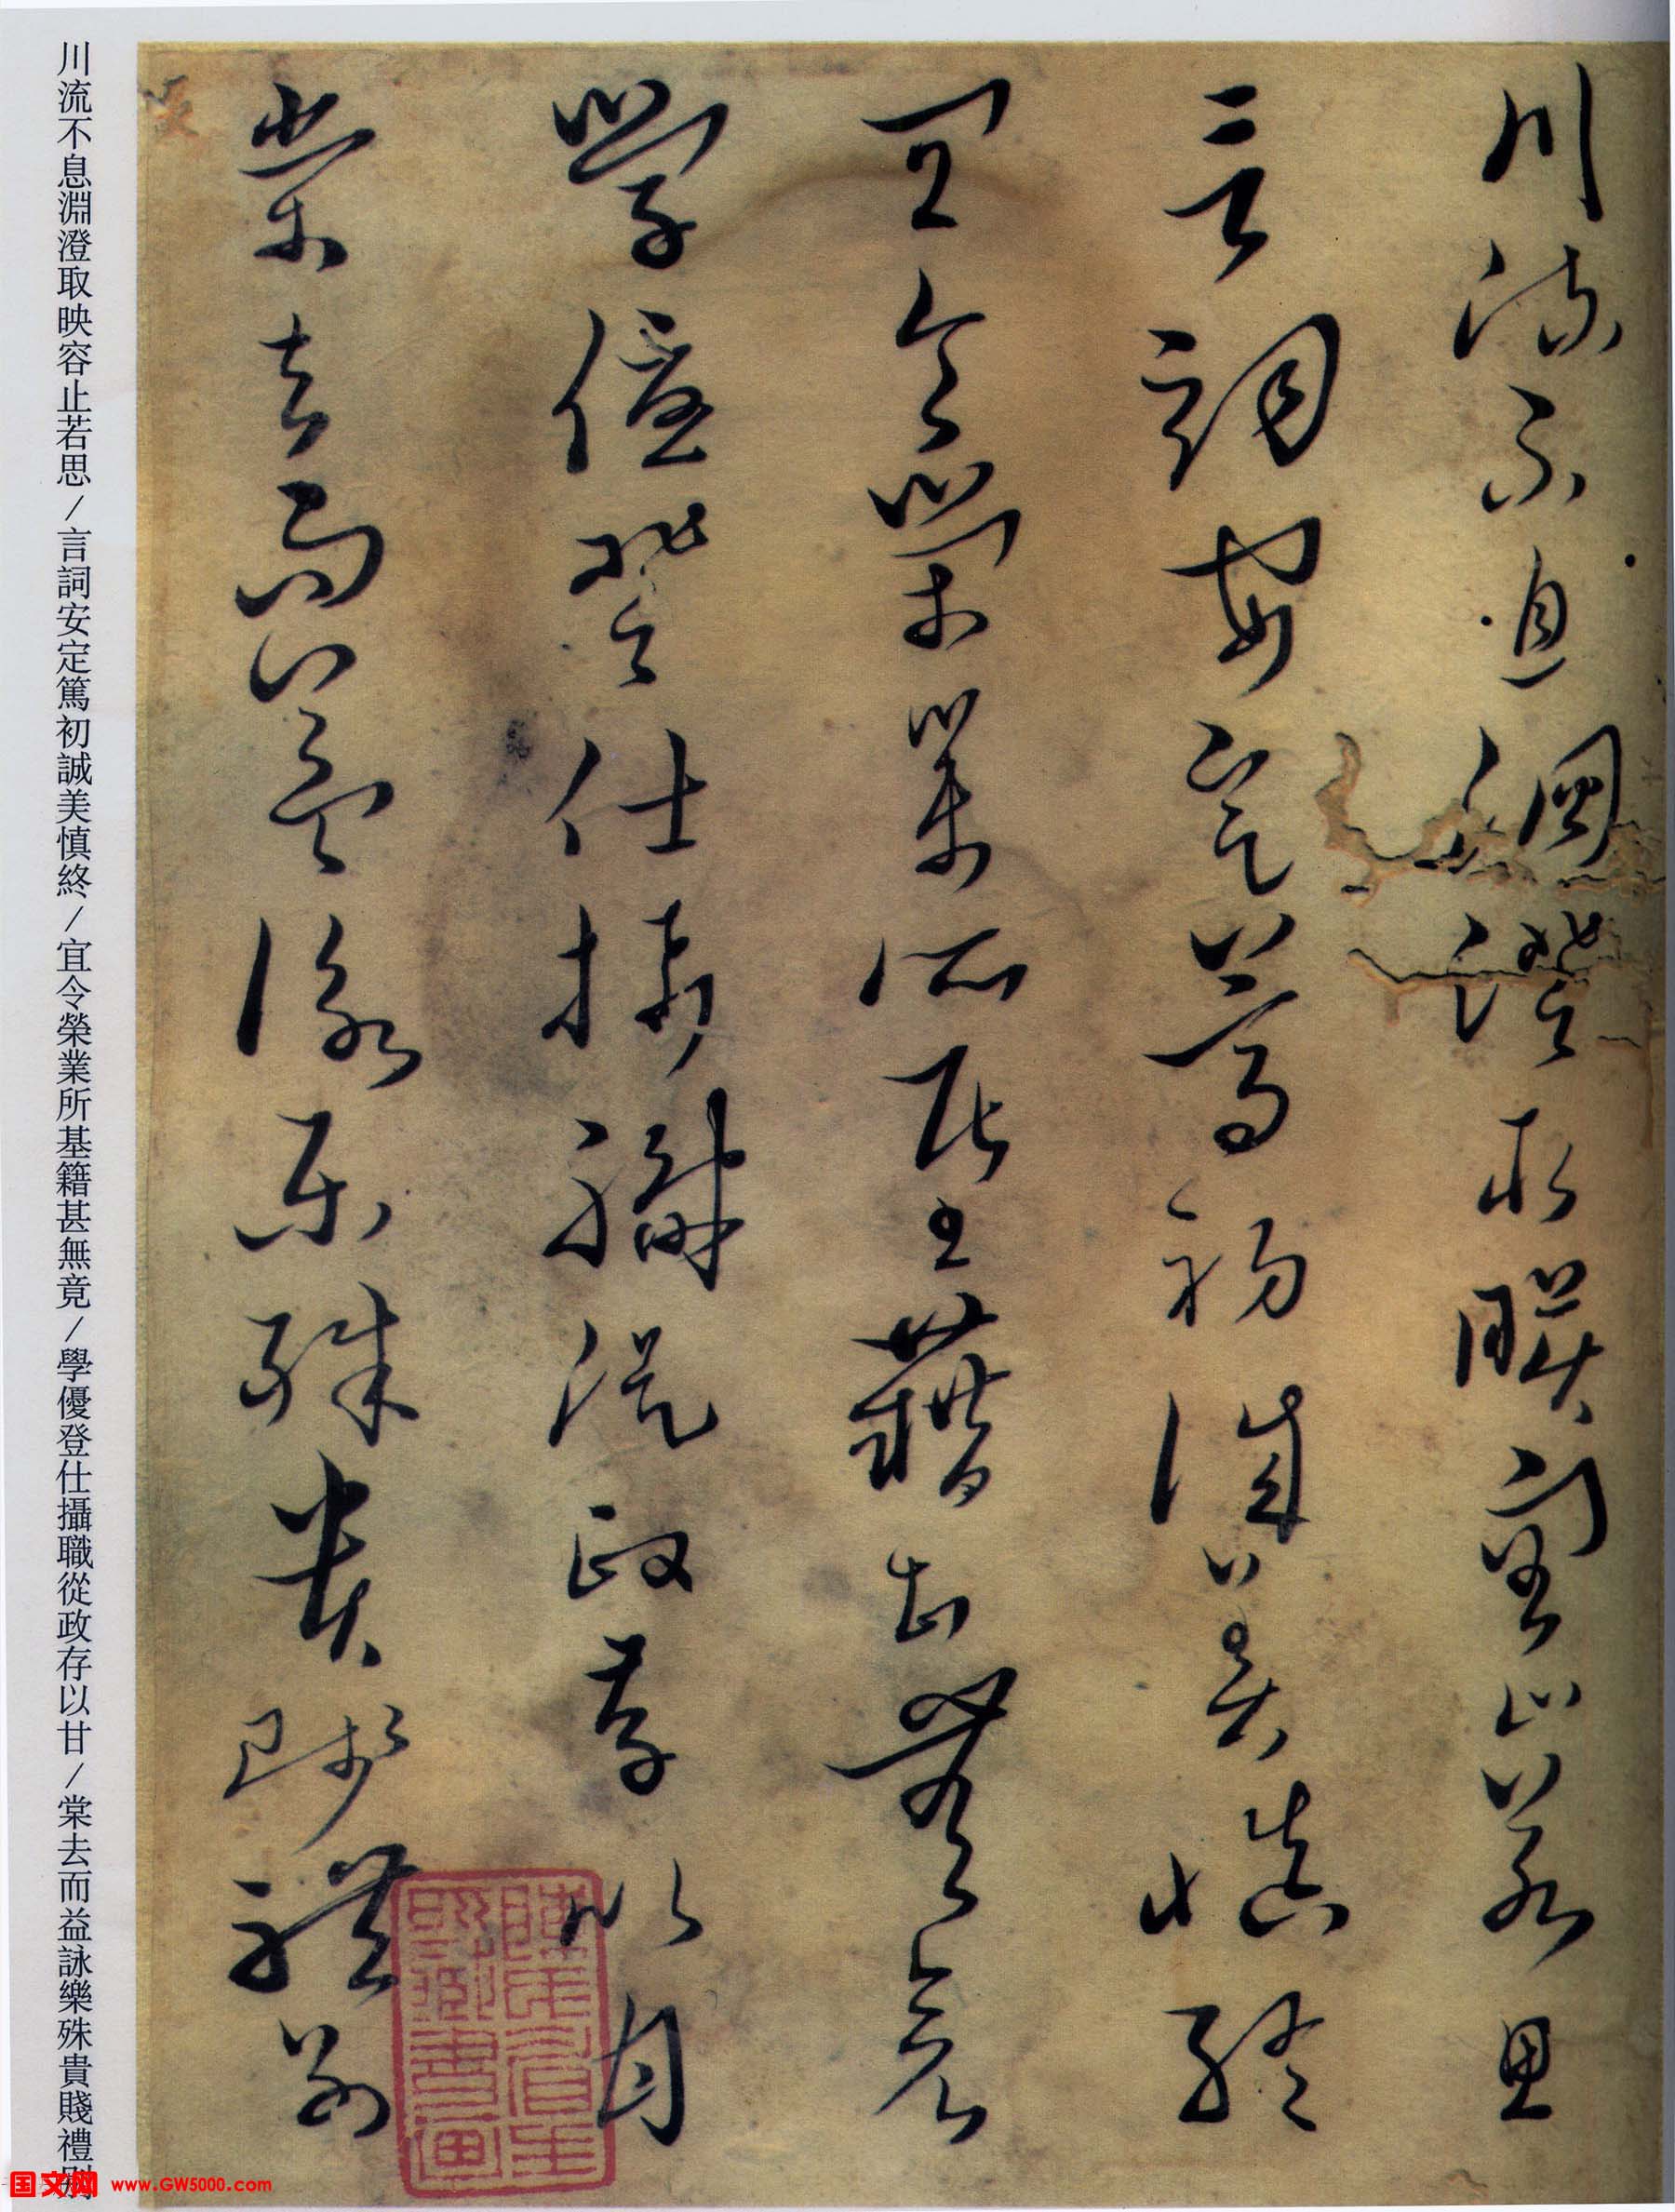 川流不息淵澄取暎容止若思
言詞安定篤初誠美慎終
宜令榮業所基藉甚無竟
學優登仕攝職從政存以甘
棠去而益詠樂殊貴賤禮別
川流不息淵澄取映容止若思/言詞安定篤初誠美慎終/宜令榮業所基籍甚無竟/學優登仕攝職從政存以甘/棠去而益詠樂殊貴賤禮別
国文网 www.GW5000.com